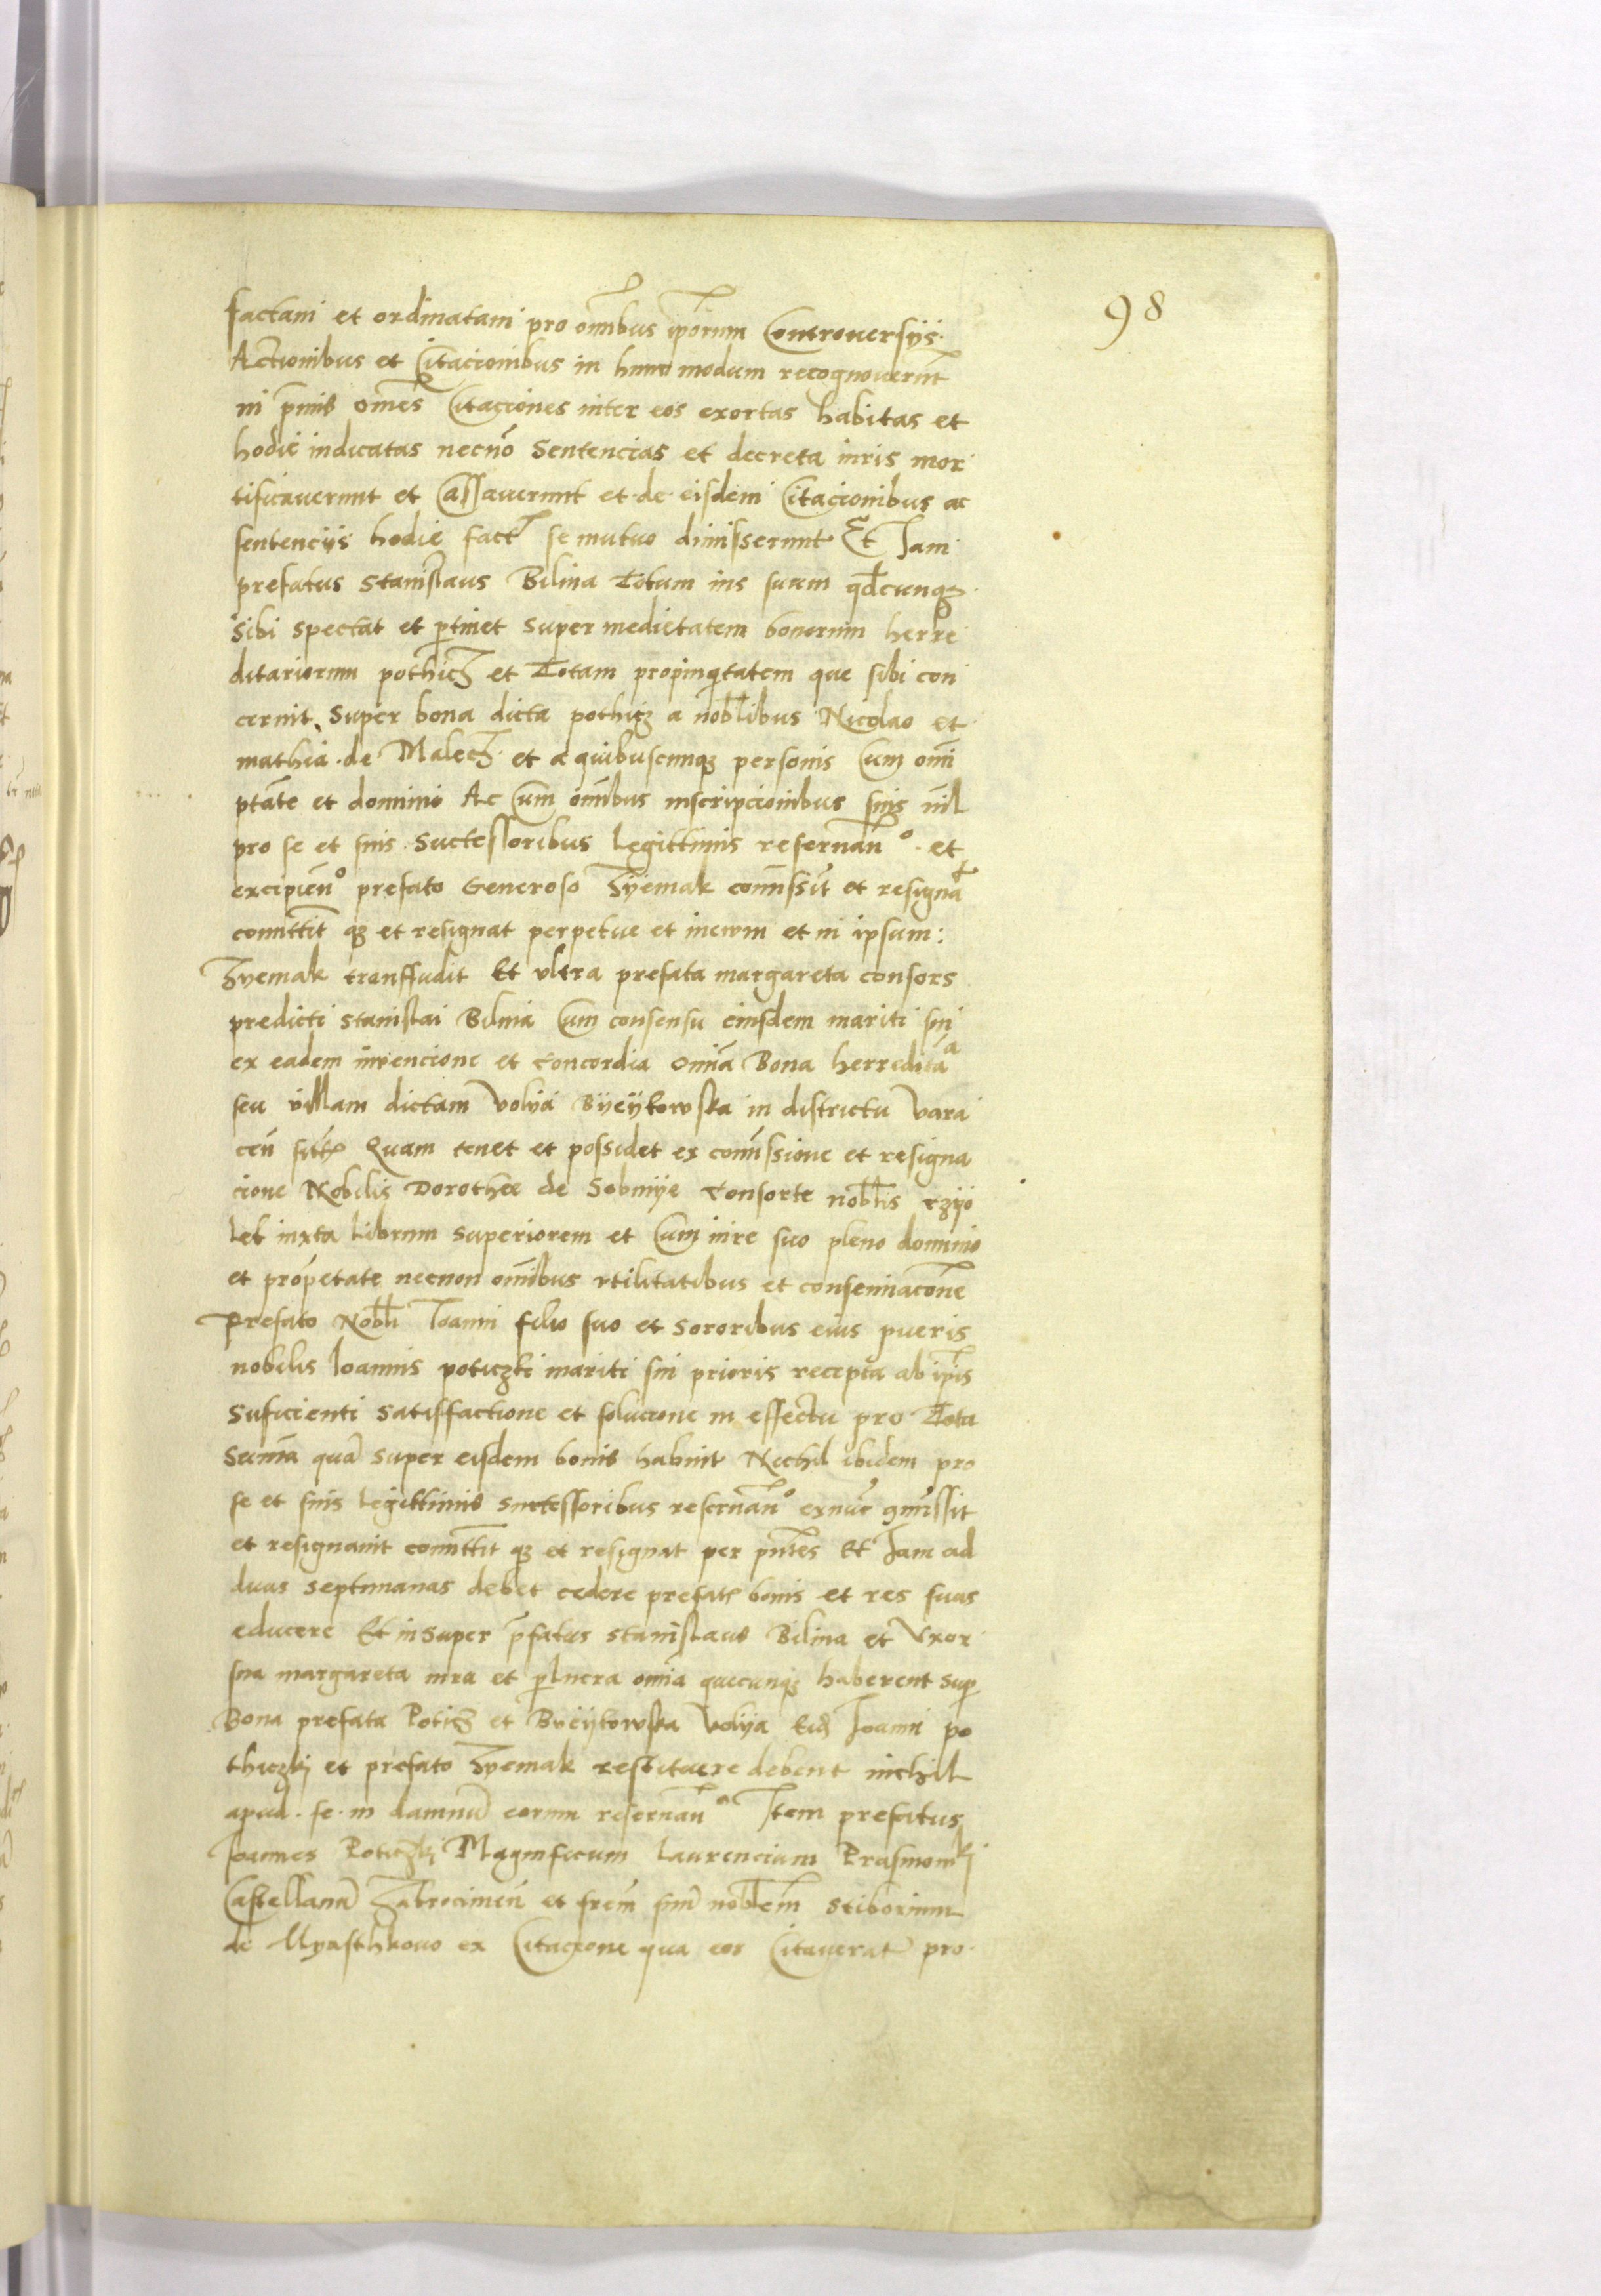 98
factam et ordinatam pro omībus ipōrum Controuersijs
Actionibus et Citacionibus in hunc modum recognouerūt
in p̄mis omēs Citaciones inter eos exortas habitas et
hodie iudicatas necnō Sentencias et decreta iuris mor
tificauerunt et Cassauerunt et de eisdem Citacionibus ac
sentencijs hodie fact se mutuo dimisserunt Et Iam
prefatus Stanislaus Bilina Totum ius suum qdcunqz
Sibi spectat et ptinet super medietatem bonorum herre
ditariorum pothicz et Totam propinqitatem que sibi con
cernit Super bona dicta pothicz a noblibus Nicolao et
mathia de Malecz et a quibuscunqz personis Cum omī
ptāte et dominio Ac Cum omībus inscripcionibus suis nil
pro se et suis Successoribus legittimis reseruanº et
excipienº prefato Generoso Zyemak comissit et resignat
comittit qz et resignat perpetue et inewm et in ipsum:
Zyemak transfudit Et vltra prefata margareta consors
predicti Stanislai Bilina Cum consensu eiusdem mariti sui
ex eadem invencione et concordia omīa Bona herredita
seu villam dictam Volya Byeytowska in districtu Vara
cen sit Quam tenet et possidet ex comissione et resigna
cione Nobilis Dorothee de Sobnye Consorte noblis rzyo
let iuxta librum superiorem et Cum iure suo pleno dominio
et propetate necnon omībus vtilitatibus et conseruacōne
Prefato Nobli Ioanni filio suo et Sororibus eius pueris
nobilis Ioannis poticzki mariti sui prioris recepta ab ipis
Suficienti satisfactione et solucione in effectu pro Tota
Sumā quā super eisdem bonis habuit Nichil ibidem pro
se et suis legittimis successoribus reseruanº exnūc 9missit
et resignauit comittit qz et resignat per pntes Et Iam ad
duas septimanas debet cedere prefat bonis et res suas
educere Et insuper pfatus Stanislaus Bilina et Vxor
sua margareta iura et plucra omīa quecunqz haberent sup
Bona prefata Poticz et Byeytowska Volya eid Ioanni po
thiczki et prefato Zyemak restituere debent nichil
apud se in damnū eorum reseruan Item prefatus
Ioannes Poticzki Magnificum Laurencium Prasmowski
Castellanū Zakrocimen et frem suū noblem Stiborium
de Myasthkowo ex Citacione qua eos Citauerat pro